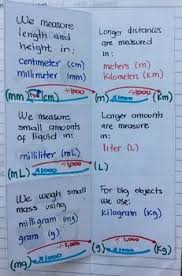 We measure
length and
height in:
centimeter (cm)
millimeter (mm)
Longer distances
are measured
in:
meters (m)
Kilometers (Km)
÷1000
(mm) (cm) (m) (Km)
x1000
We measure
small amounts
of liquid in:
milliliter (mL)
Larger amounts
are measure
in:
liter (L)
÷1000
(mL) (L)
x1000
We weigh small
mass using
milligram (mg)
gram (g)
For big objects
we use:
Kilogram (Kg)
÷1,000
÷1,000
(mg) (g) (Kg)
x1000
x1000